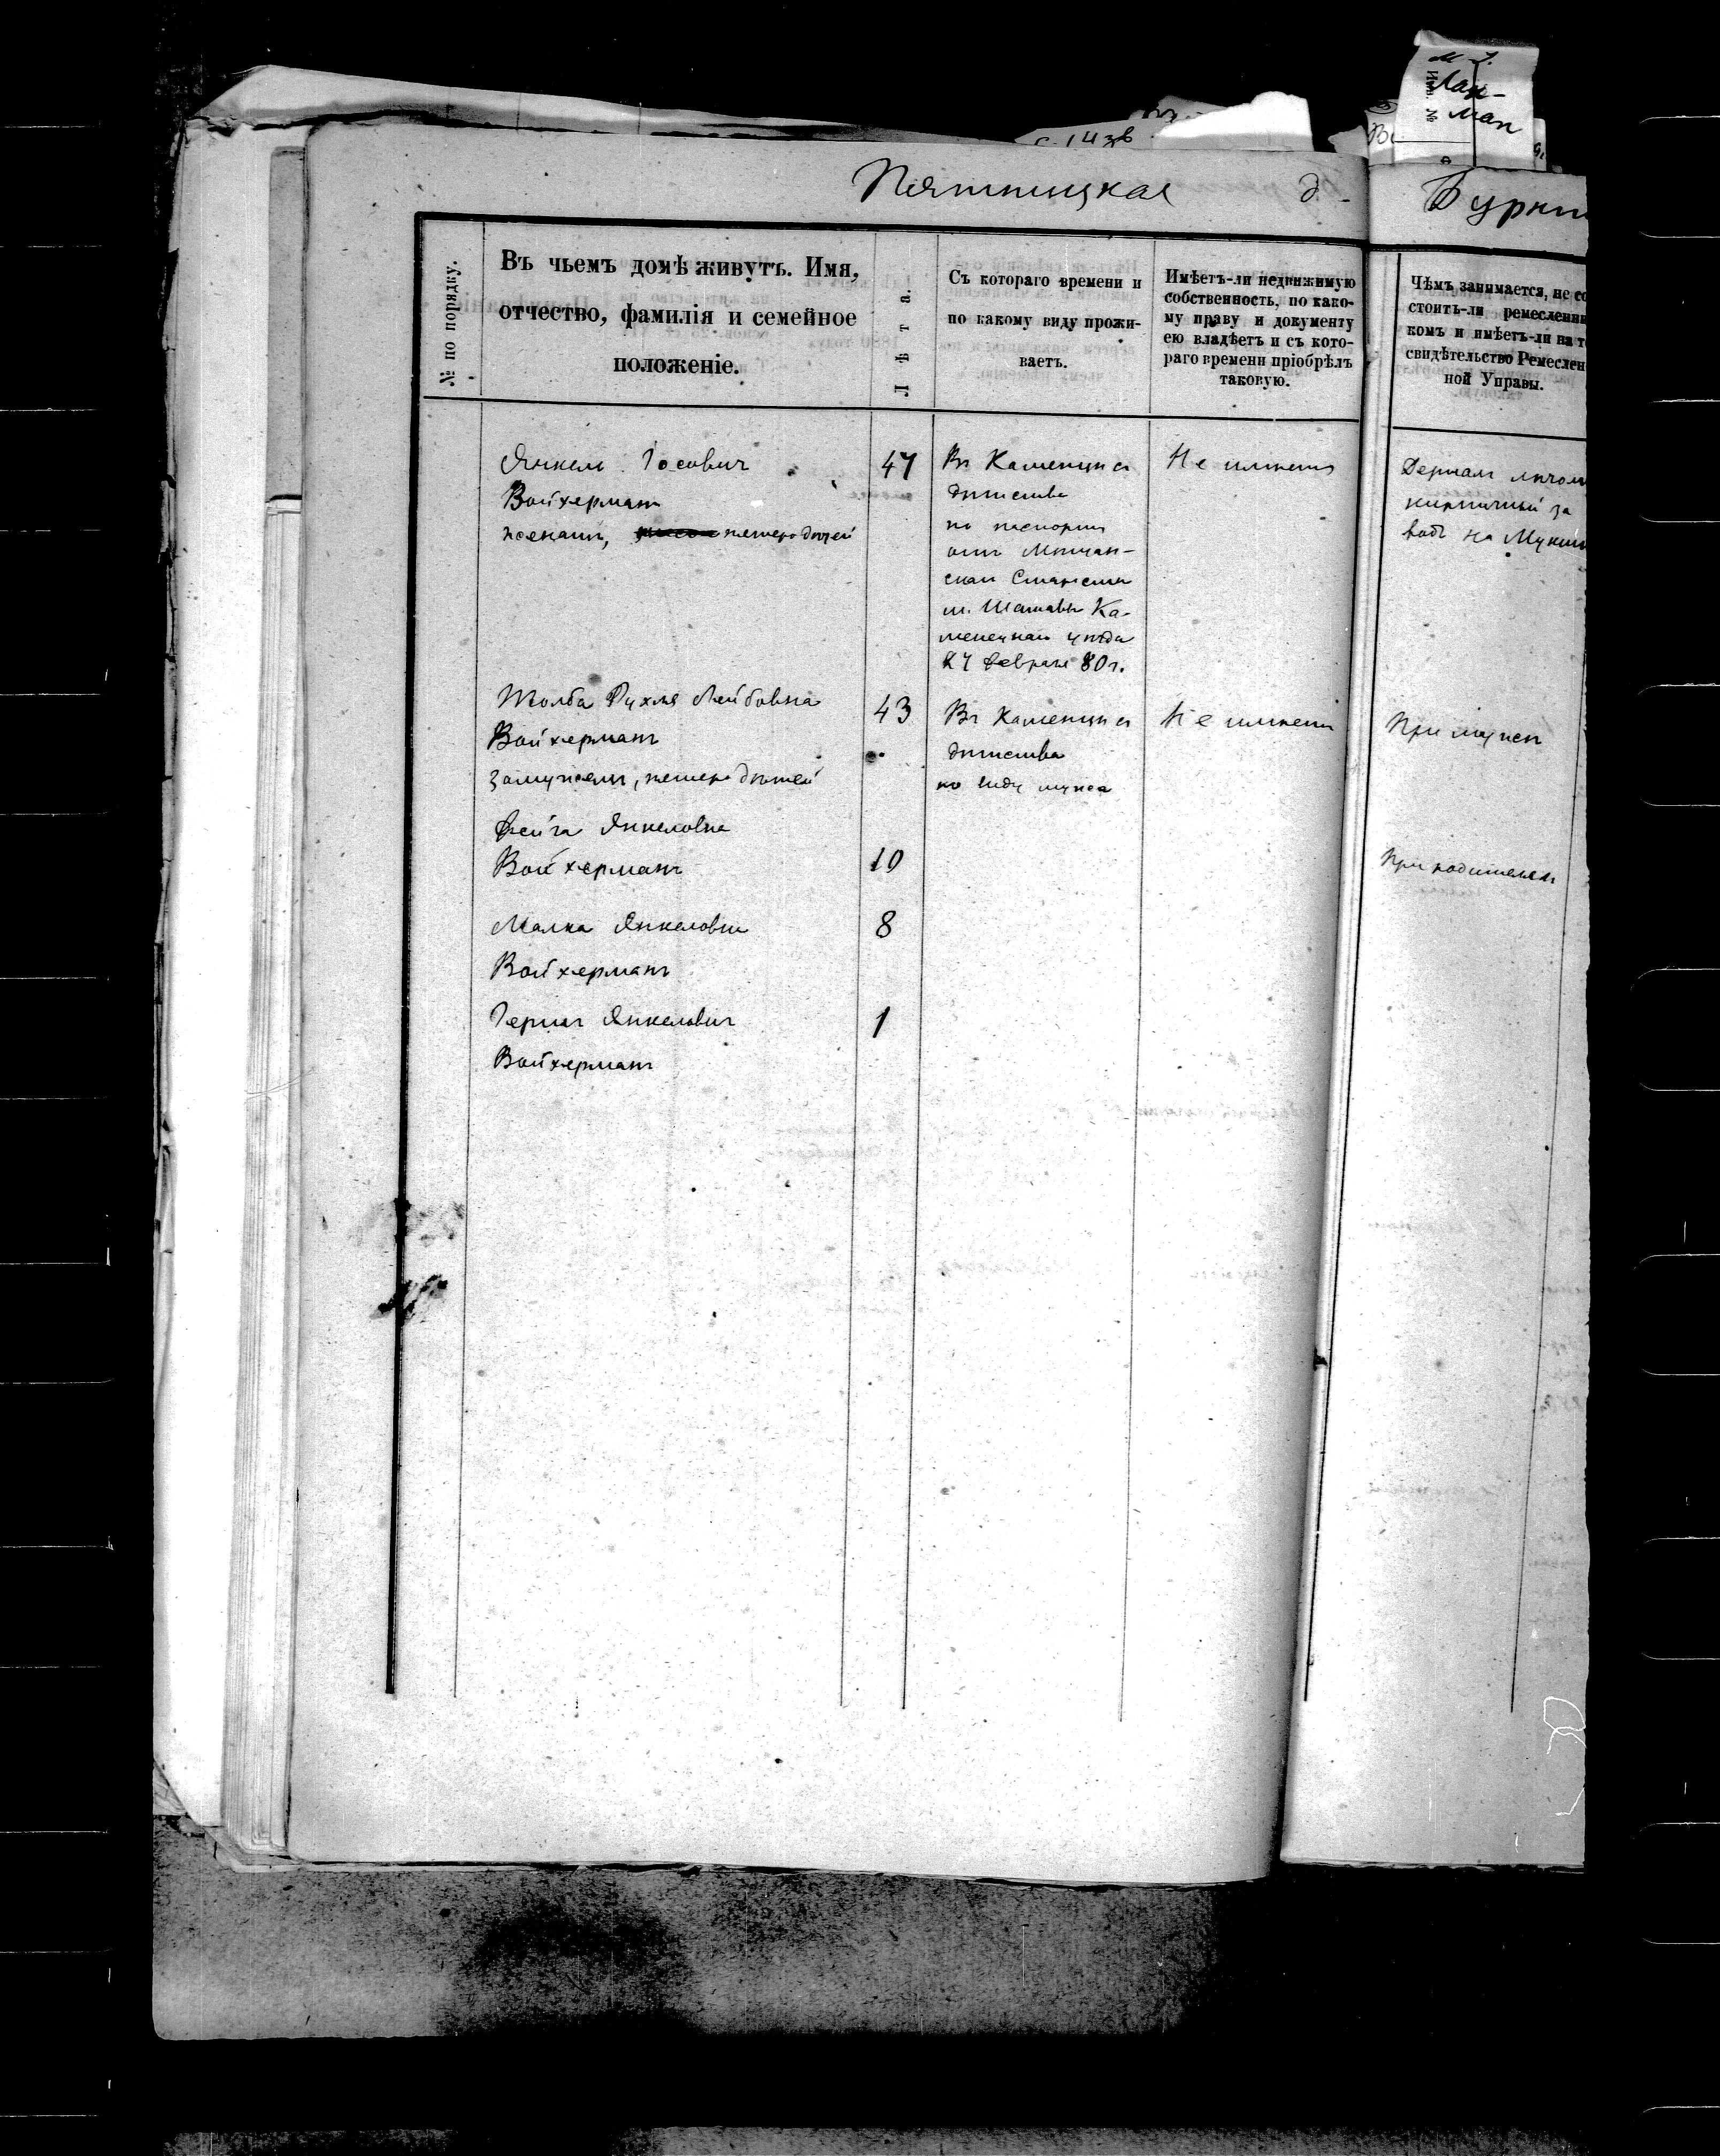 М
Лах-
ман
Пятницкая д.
№ по порядку.
Въ чьемъ домѣ живутъ. Имя,
отчество, фамилія и семейное
положеніе.
Лѣта.
Съ котораго времени и
по какому виду прожи-
ваетъ.
Имѣетъ-ли недвижимую
собственность, по како-
му праву и документу
ею владѣетъ и съ кото-
раго времени пріобрѣлъ
таковую.
Чѣмъ занимается, не со
стоитъ-ли ремесленни
комъ и имѣетъ-ли на т
свидѣтельство Ремеслен
ной Управы.
Янкель Іосевич 47
Войхерманъ
женатъ, пятеро дѣтей
Въ Каменцѣ съ
дѣтства
по паспорту
отъ
м. Шатавы Ка-
менецкаго уѣзда
февраля 80 г.
Не имѣетъ
кирпичный за
водъ на
Рухля Лейбовна 43
Войхерманъ
замужемъ, пятеро дѣтей
Въ Каменцѣ съ
дѣтства
по виду мужа
Не имѣетъ
При мужѣ
Фейга Янкеловна
Войхерманъ 10
При родителяхъ
Малка Янкеловна 8
Войхерманъ
Герш Янкелевич 1
Войхерманъ